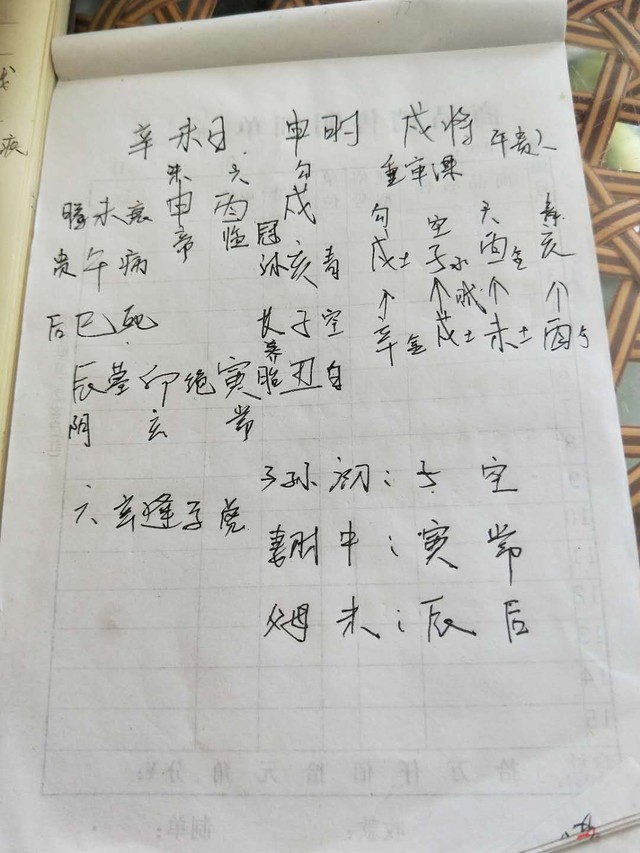 辛未日 申时 戌将 午贵人
朱 六 勾 重审课
螣未衰 申帝 酉临 戌冠 勾 空 六 青
贵午病 沐亥青 戌土 子水 酉金 亥
后巳死 长子空 辛金 戌土 未土 酉
辰墓卯绝寅胎丑白
养
阴 玄 常
子孙初：子 空
六玄逢子虎
妻财中：寅 常
父母末：辰 后
拾万仟佰拾元角分￥：
收款： 制单：